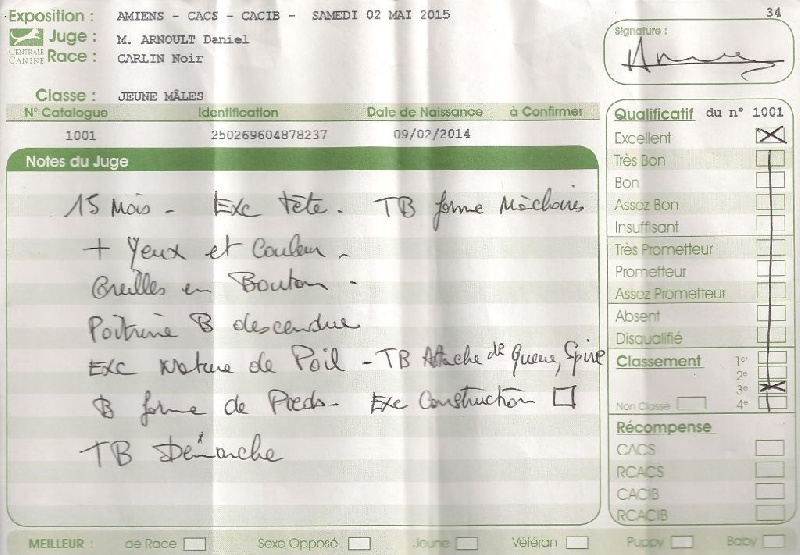 Exposition : AMIENS - CACS - CACIB - SAMEDI 02 MAI 2015
34
Juge : M. ARNOULT Daniel
CENTRALE CANINE
Race : CARLIN Noir
Signature :
Classe : JEUNE MÂLES
N° Catalogue Identification Date de Naissance à Confirmer
1001 250269604878237 09/02/2014
Qualificatif du n° 1001
Excellent
Très Bon
Bon
Assez Bon
Insuffisant
Très Prometteur
Prometteur
Assez Prometteur
Absent
Disqualifié
Classement 1e
2e
3e
Non Classé 4e
Récompense
CACS
RCACS
CACIB
RCACIB
Notes du Juge
15 Mois - Exc Tête. TB forme Mâchoires
+ Yeux et Couleur.
Oreilles en Bouton.
Poitrine B descendue
Exc Nature de Poil - TB Attache de Queue, Spire
B forme de Pieds. Exc Construction
TB Démarche
MEILLEUR : de Race Sexe Opposé Jeune Vétéran Puppy Baby